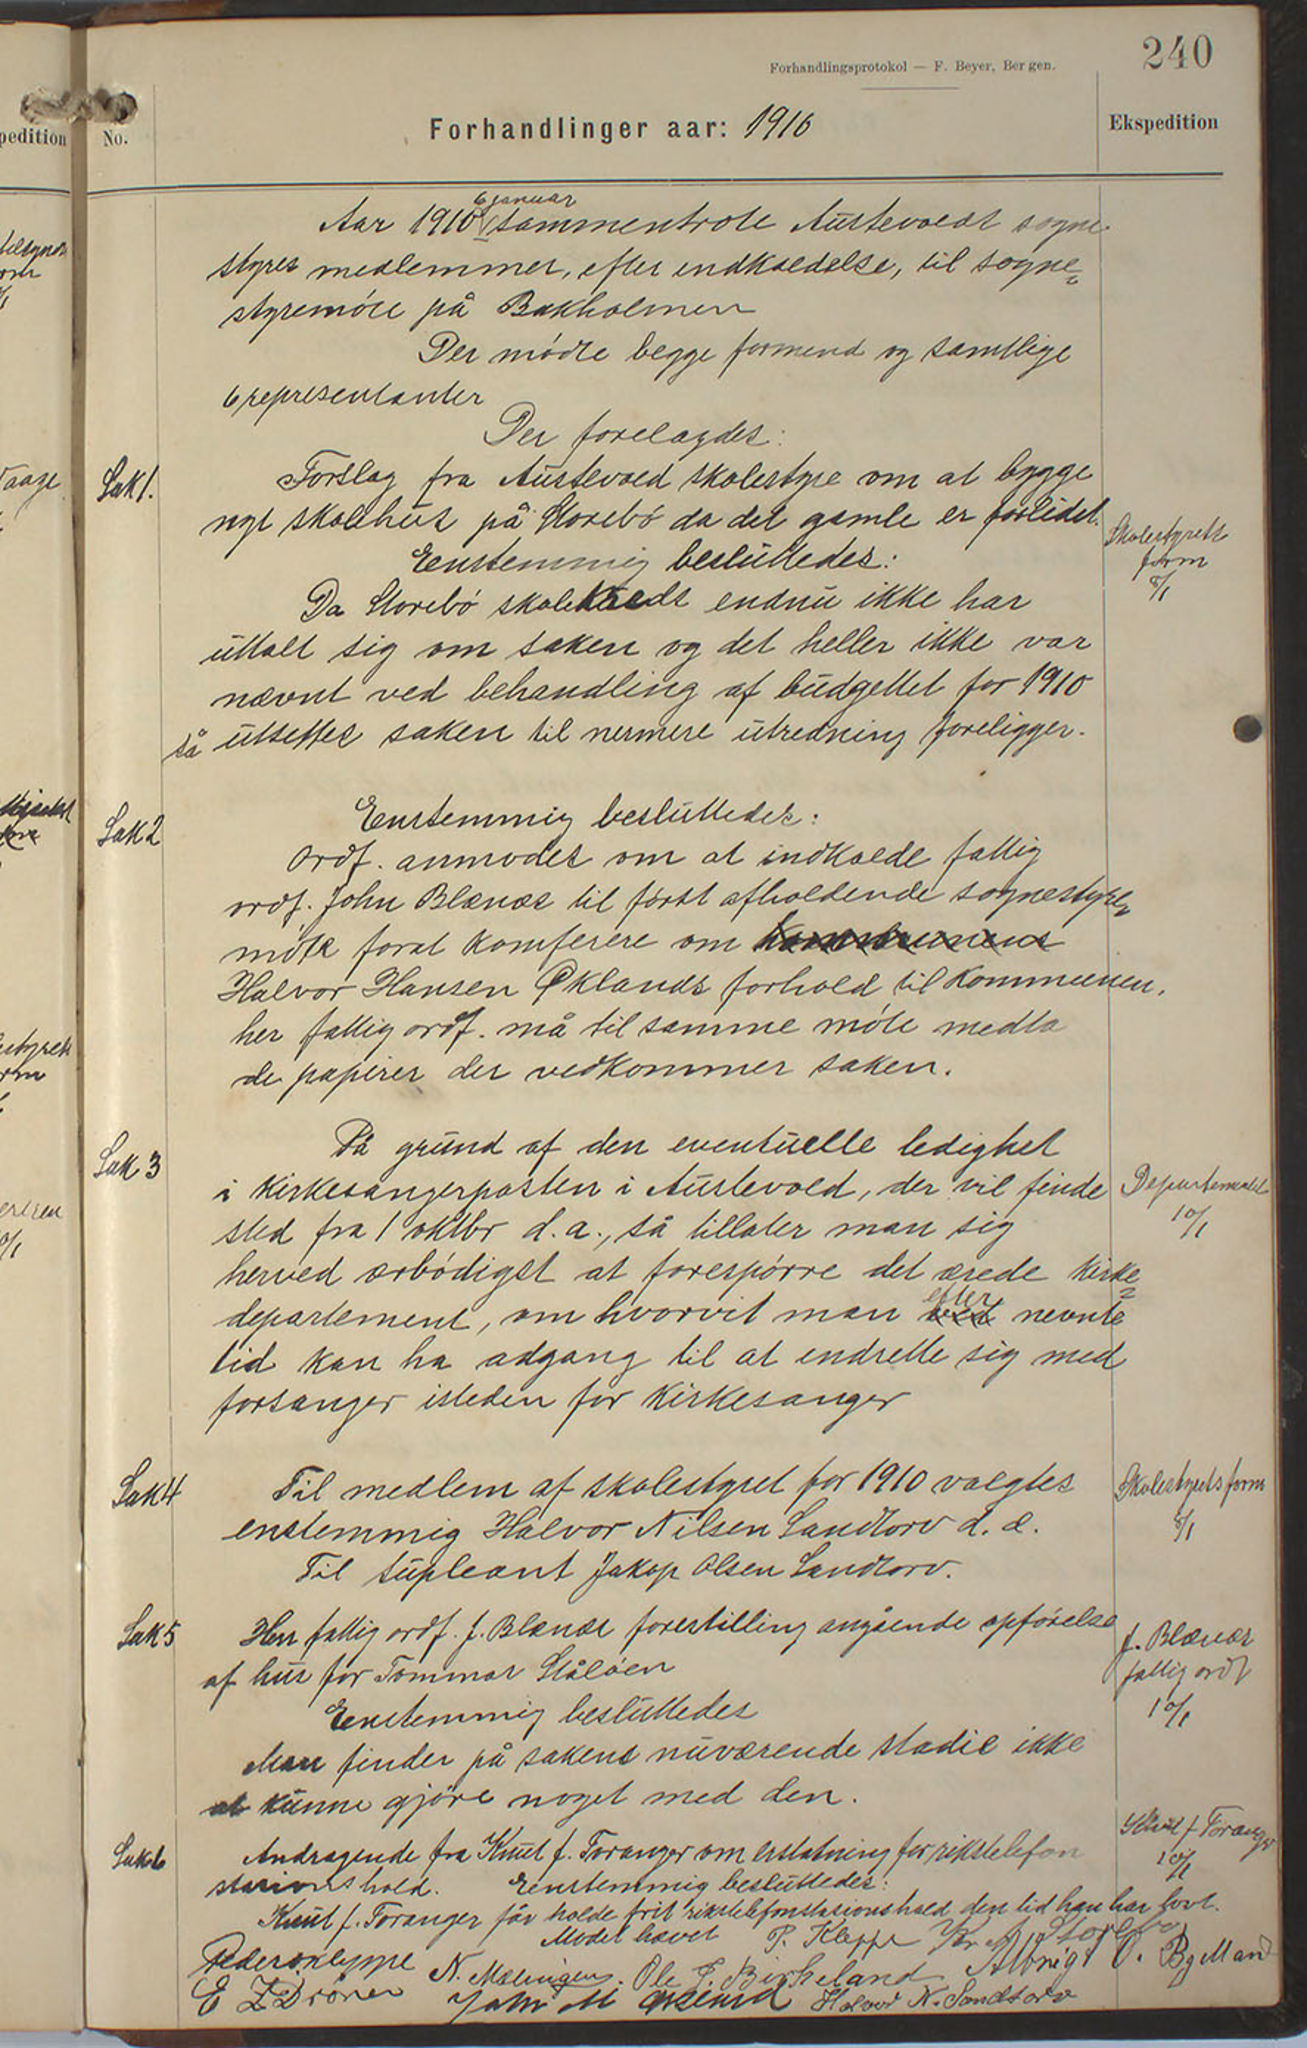 240
Forhandlingsprotokol — F. Beyer, Bergen.
Forhandlinger aar: 1910
No.
Ekspedition
pedition
Aar 1910 6 januar sammentrote Austevolds sogne-
styres medlemmer, efter indkaldelse, til sogne=
styremöte på Bakholmen
Der mödte begge formend og samtlige
6 representanter
Der forelagdes:
Sak 1.
Forslag fra Austevold skolestyre om at bygge
nyt skolehus på Storebö da det gamle er forlidet.
Skolestyrets
form
8/1
Eenstemmig besluttedes:
Da Storebö skolekreds endnu ikke har
uttalt sig om saken og det heller ikke var
nævnt ved behandling af budgettet for 1910
så utsettes saken til nermere utredning foreligger.
Sak 2
Eenstemmig besluttedes:
Ordf. anmodes om at indkalde fattig
ordf. John Blænæs til först afholdende sognestyre=
möte forat komferere om
Halvor Hansen Öklands forhold til kommunen.
her fattig ordf. må til samme möte medta
de papirer der vedkommer saken.
Sak 3
På grund af den eventuelle ledighet
i kirkesangerposten i Austevold, der vil finde
Departementet
10/1
sted fra 1 oktbr d.a., så tillater man sig
herved ærbödigst at forespörre det ærede kirke=
departement, om hvorvit man efter nevnte
tid kan ha adgang til at endrette sig med
forsanger isteden for kirkesanger
Sak 4
Til medlem af skolestyret for 1910 valgtes
Skolestyrets form
8/1
enstemmig Halvor Nilsen Sandtorv d. æ.
Til supleant Jakop Olsen Sandtorv.
Sak 5
Herr fattig ordf. J. Blænæs forestilling angående opförelse
J. Blænæs
fattig ordf
10/1
af hus for Tommas Stålöen
Eenstemmig besluttedes
Man finder på sakens nuværende stadie ikke
at kunne gjöre noget med den.
Sak 6
Andragende fra Knut J. Toranger om erstatning for rikstelefon
Knut J Toranger
10/1
stasionshold. Eenstemmig besluttedes:
Knut J. Toranger får holde frit rikstelefonstasionshold den tid han har lovt.
Mödet hævet
P. Kleppe
Storebö
Peder Kleppe
N. Mælingen.
Ole J. Birkeland
Albrigt O. BgMand
E Z Drönen
John M
Halvor N. Sandtorv